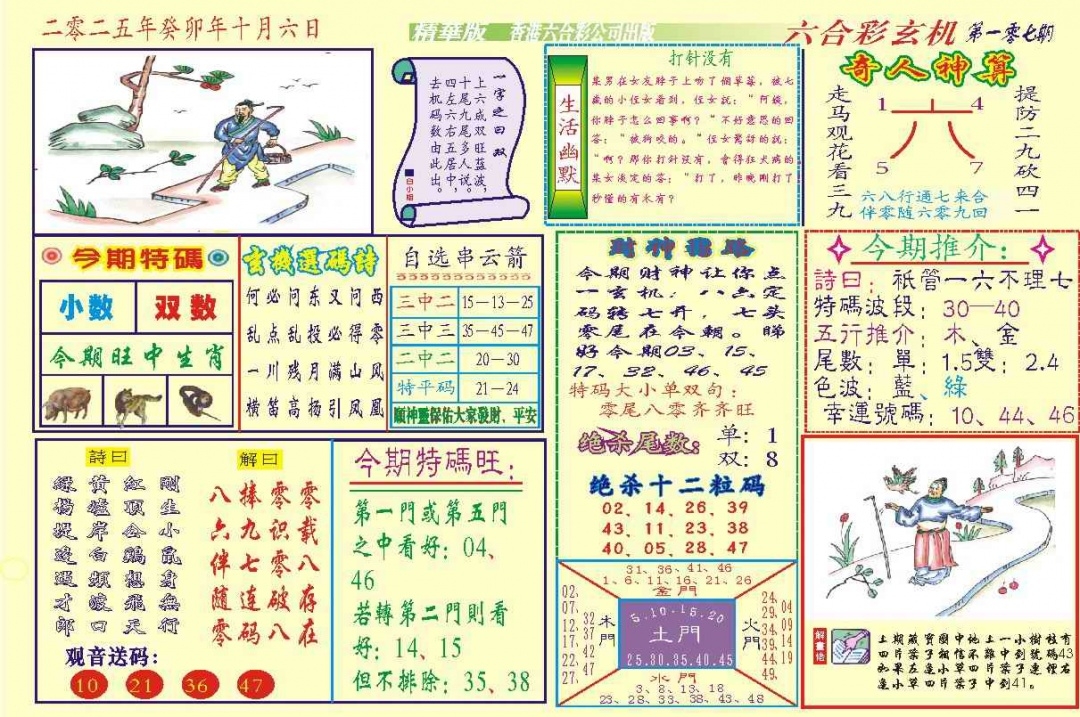 二零二五年癸卯年十月六日
精華版 香港六合彩公司出版
六合彩玄机 第一零七期
一字之曰双
上六成双旺蓝波,
十尾九尾多人说,
四左六右五居中,
去机码数由此出。
白小姐
生活幽默
打针没有
某男在女友脖子上吻了個草莓,被七
歲的小侄女看到,侄女說:“阿姨,
你脖子怎么回事啊?”不好意思的回
答:“被狗咬的。”侄女驚訝的說:
“啊?那你打針沒有,會得狂犬病的
某女淡定的答:“打了,昨晚剛打了
秒懂的有木有?
奇人神算
走马观花看三九
提防二九砍四一
1 4
六
5 7
六八行通七来合
伴零随六零九回
今期特碼
小数 双数
今期旺中生肖
玄機選碼詩
何必问东又问西
乱点乱投必得零
一川残月满山风
横笛高扬引凤凰
自选串云箭
三中二 15—13—25
三中三 35—45—47
二中二 20—30
特平码 21—24
願神靈保佑大家發財、平安
財神現路
今期财神让你点
一玄机:八六定
码转七开,七头
零尾在今朝。睇
好今期03、15、
17、32、46、45
特码大小单双句:
零尾八零齐齐旺
绝杀尾数:
单:1
双:8
绝杀十二粒码
02、14、26、39
43、11、23、38
40、05、28、47
今期推介:
詩曰:祇管一六不理七
特碼波段:30—40
五行推介:木、金
尾數:單:1.5雙:2.4
色波:藍、綠
幸運號碼:10、44、46
詩曰
剛生小鼠身無行
紅頂公鷄想飛天
黄墟岸白煩渡口
綠楊堤邊遇才郎
解曰
零零
八捧零载
六九识八
伴七零存
随连破在
零码八
观音送码:
10 21 36 47
今期特碼旺:
第一門或第五門
之中看好:04、
46
若轉第二門則看
好:14、15
但不排除:35、38
31、36、41、46
1、6、11、16、21、26
金門
02、07、12、17、22、27、
32、37、42、47
木門
5.10.15.20
土門
25.30.35.40.45
火門
24、29、34、39、44、49
04、09、14、19
水門
3、8、13、18
23、28、33、38、43、48
解畫佬
上期藏寶圖中地上一小樹枝有
四片葉子相信不難中到號碼43
如果左邊小草四片葉子連徑右
邊小草四片葉子中到41。